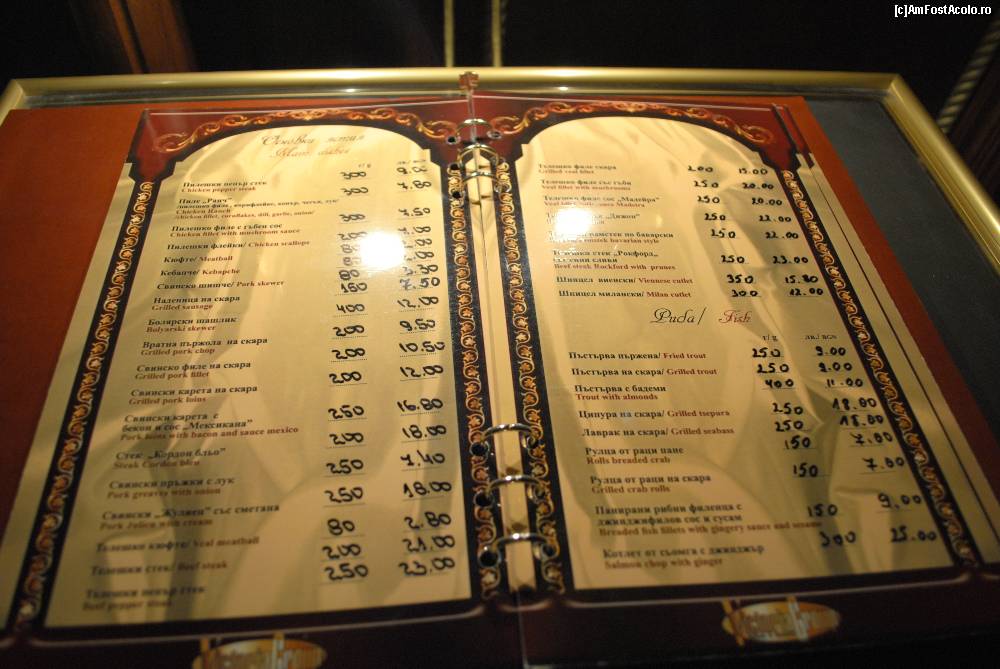 [c]AmFostAcolo.ro
Основни ястия
Main dishes
г/g лв./BGN
Пилешки пепър стек 300
Chicken pepper steak
Пиле „Ранч“ 300 7.80
Chicken Ranch
Chicken fillet, cornflakes, dill, garlic, onion/
Пилешко филе с гъбен сос 300 7.50
Chicken fillet with mushroom sauce
Пилешки флейки/ Chicken scallops
Кюфте/ Meatball
Кебапче/ Kebapche
Свинско шишче/ Pork skewer 160
Наденица на скара 400 12.00
Grilled sausage
Болярски шашлик 200 9.50
Bolyarski skewer
Вратна пържола на скара 200 10.50
Grilled pork chop
Свинско филе на скара 200 12.00
Grilled pork fillet
Свински карета на скара 250 16.80
Grilled pork loins
Свински карета с
бекон и сос „Мексикана“ 200 18.00
Pork loins with bacon and sauce mexico
Стек „Кордон бльо“ 250 7.40
Steak Cordon bleu
Свински пръжки с лук 250 18.00
Pork greaves with onion
Свински „Жулиен“ със сметана 80 2.80
Pork Julien with cream
Телешко кюфте/ Veal meatball 200 21.00
Телешки стек/ Beef steak 250 23.00
Телешки пепър стек
Beef pepper steak
Телешко филе скара 200 15.00
Grilled veal fillet
Телешко филе със гъби 250 20.00
Veal fillet with mushrooms
Телешко филе сос „Мадейра“ 250 20.00
Madeira
„Дижон“ 250 22.00
рамстек по баварски 250 22.00
romstek bavarian style
стек „Рокфорд“
сливи 250 23.00
Beef steak Rockford with prunes
Шницел виенски/ Viennese cutlet 350 15.80
Шницел милански/ Milan cutlet 300 12.00
Риба/ Fish
г/g лв./BGN
Пъстърва пържена/ Fried trout 250 9.00
Пъстърва на скара/ Grilled trout 250 9.00
Пъстърва с бадеми 400 11.00
Trout with almonds
Ципура на скара/ Grilled tsepura 250 18.00
Лаврак на скара/ Grilled seabass 250 18.00
Рулца от раци пане 150 7.00
Rolls breaded crab
Рулца от раци на скара 150 7.00
Grilled crab rolls
Панирани рибни филенца с
джинджифилов сос и сусам 150 9.00
Breaded fish fillets with gingery sauce and sesame
Котлет от сьомга с джинджър 300 25.00
Salmon chop with ginger